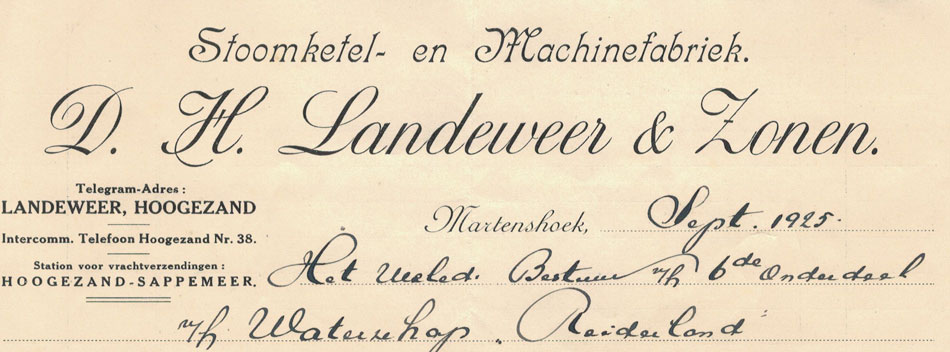 Stoomketel- en Machinefabriek.
D. H. Landeweer & Zonen.
Telegram-Adres:
LANDEWEER, HOOGEZAND
Intercomm. Telefoon Hoogezand Nr. 38.
Station voor vrachtverzendingen:
HOOGEZAND-SAPPEMEER.
Martenshoek, Sept. 1925.
Het Weled. Bestuur v/h 6de Onderdeel
v/h Waterschap „Reiderland"